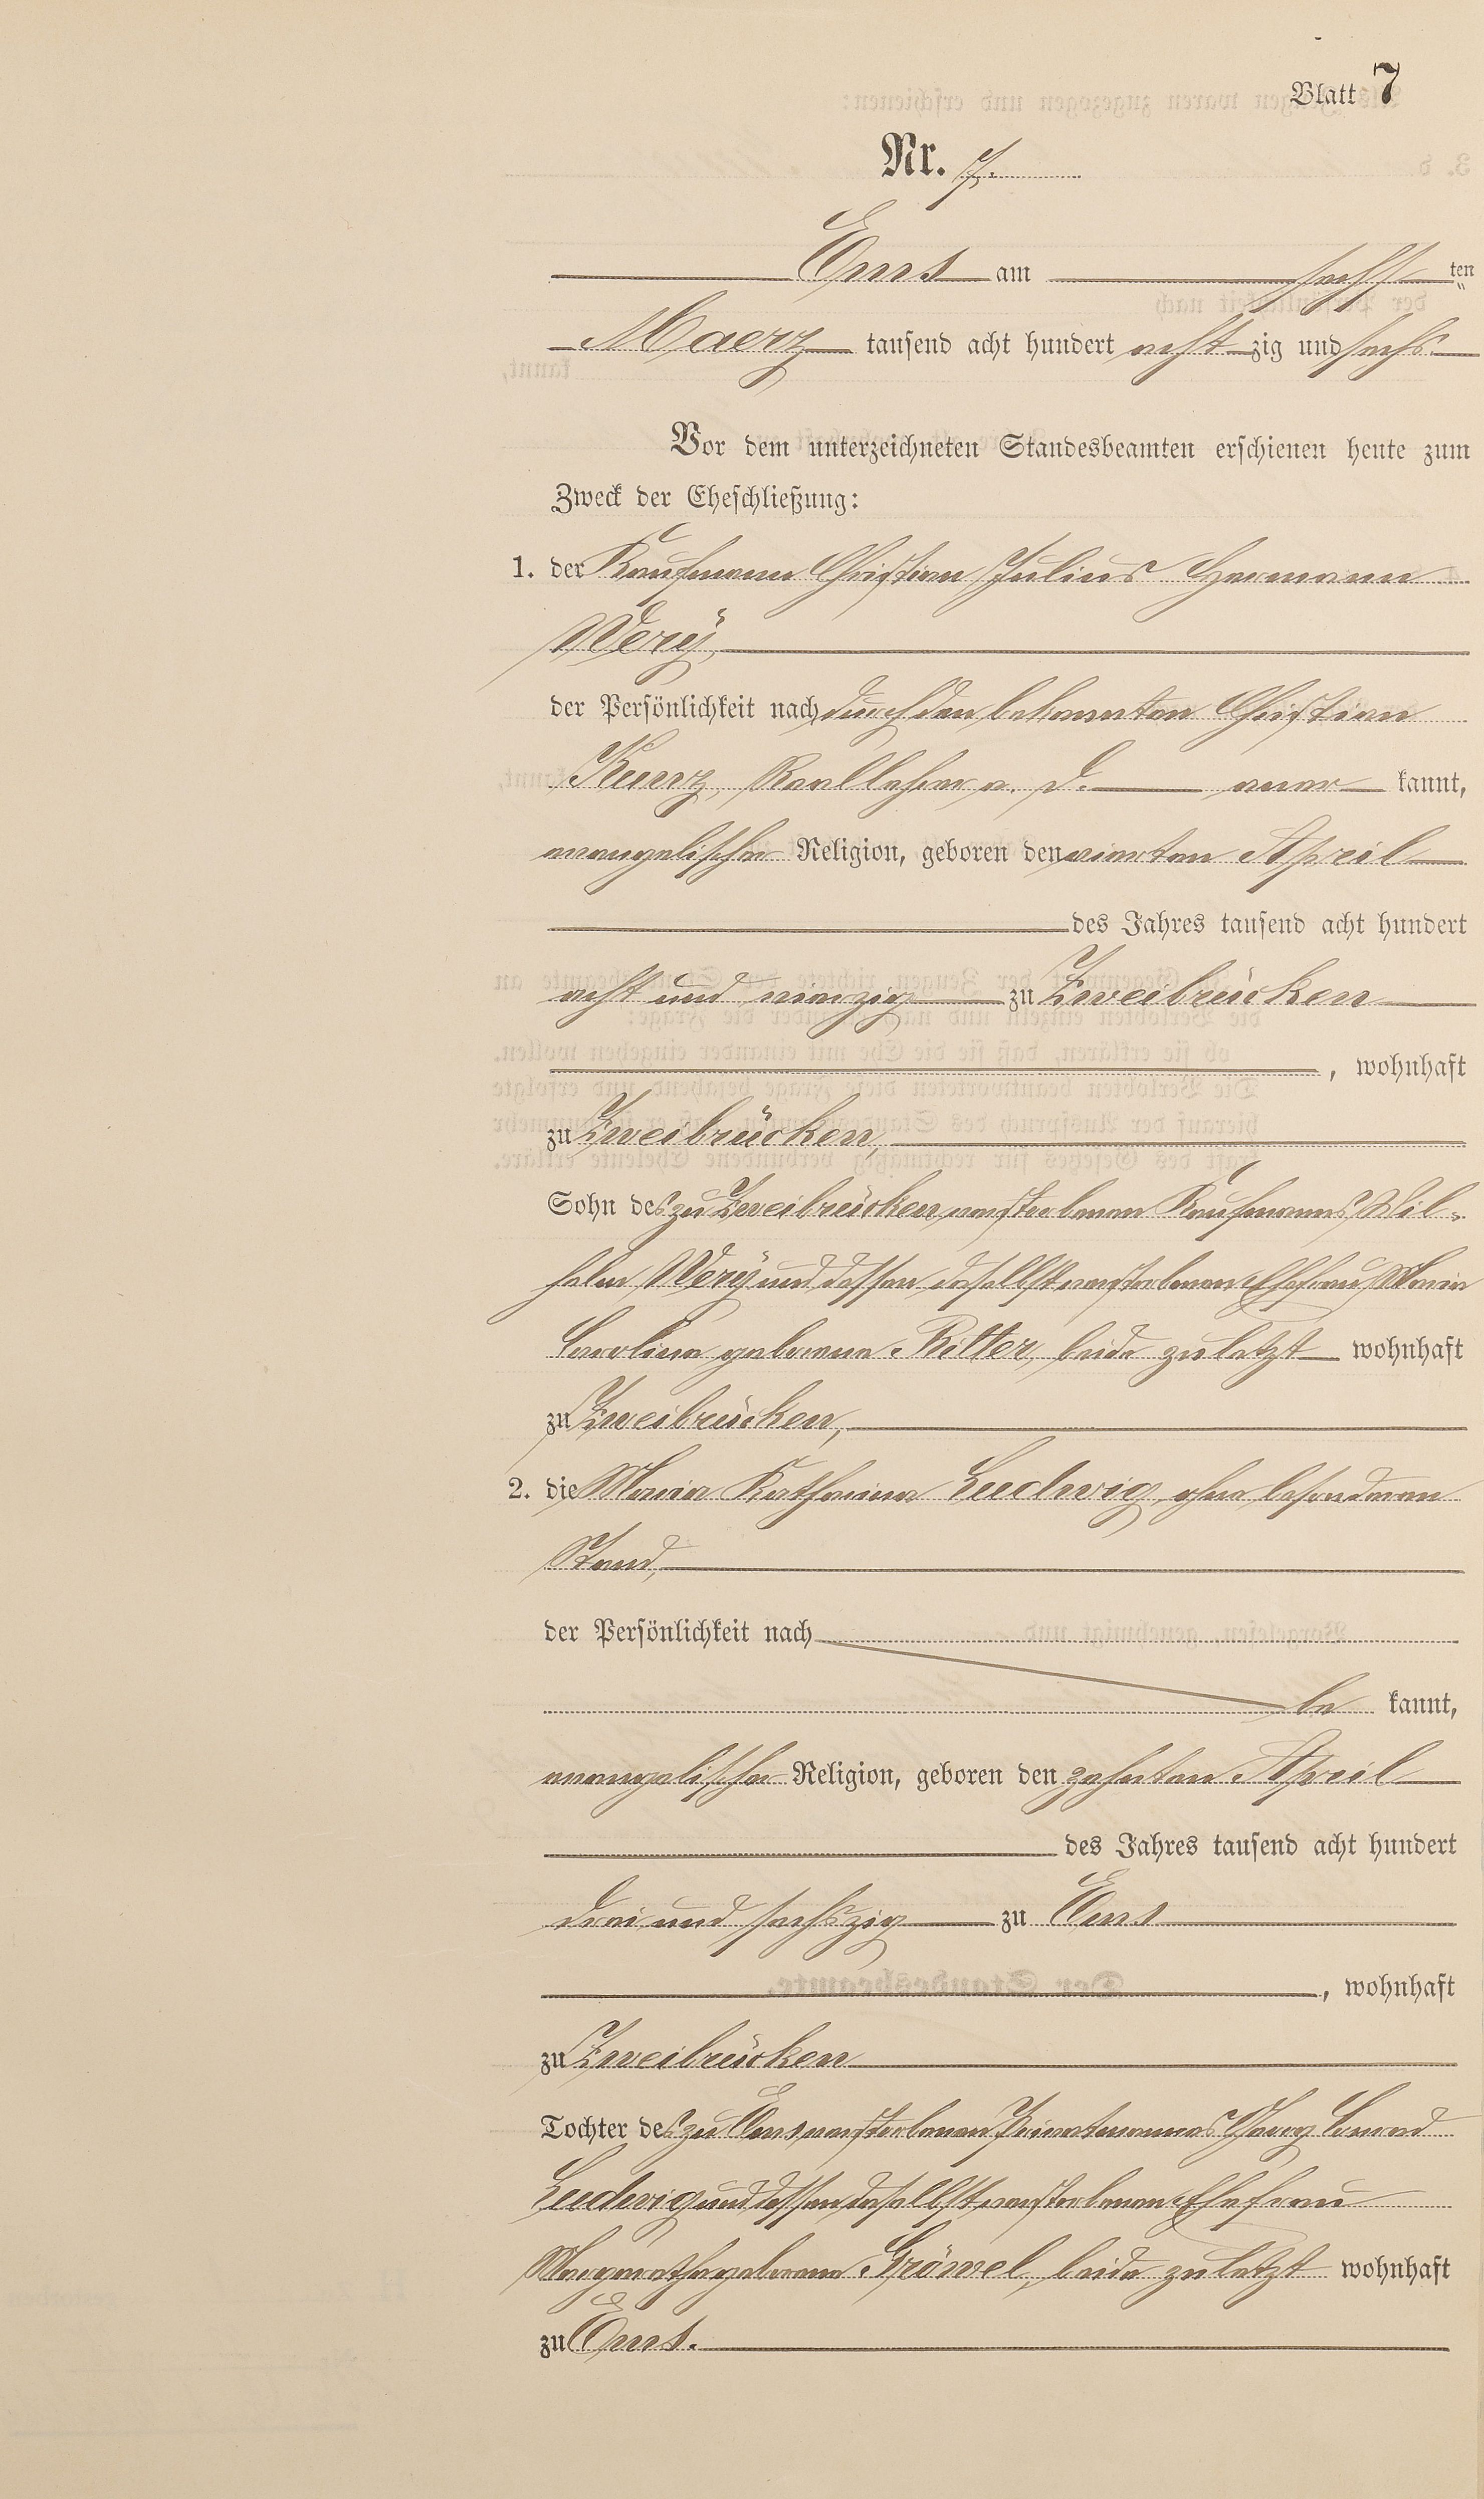 Blatt 7
Nr. 7.
Ems am sechsten
Maerz tausend acht hundert acht zig und sechs
Vor dem unterzeichneten Standesbeamten erschienen heute zum
Zweck der Eheschließung:
1. der Kaufmann Christian Julius Hermann
Werÿ,
der Persönlichkeit nach durch den bekannten Christian
Kunz, Reallehrer a. D. aner kannt,
evangelischer Religion, geboren den vierten April
des Jahres tausend acht hundert
acht und vierzig zu Zweibrücken
, wohnhaft
zu Zweibrücken,
Sohn des zu Zweibrücken verstorbenen Kaufmanns Wil-
helm Werÿ und dessen daselbst verstorbenen Ehefrau Maria
Carolina geborene Ritter, beide zuletzt wohnhaft
zu Zweibrücken,
2. die Maria Katharina Ludwig, ohne besonderen
Stand,
der Persönlichkeit nach
be kannt,
evangelischer Religion, geboren den zehnten April
des Jahres tausend acht hundert
drei und sechszig zu Ems
, wohnhaft
zu Zweibrücken
Tochter des zu Ems verstorbenen Privatmannes Georg Conrad
Ludwig und dessen daselbst verstorbenen Ehefrau
Margaretha geborene Gröwel, beide zuletzt wohnhaft
zu Ems.